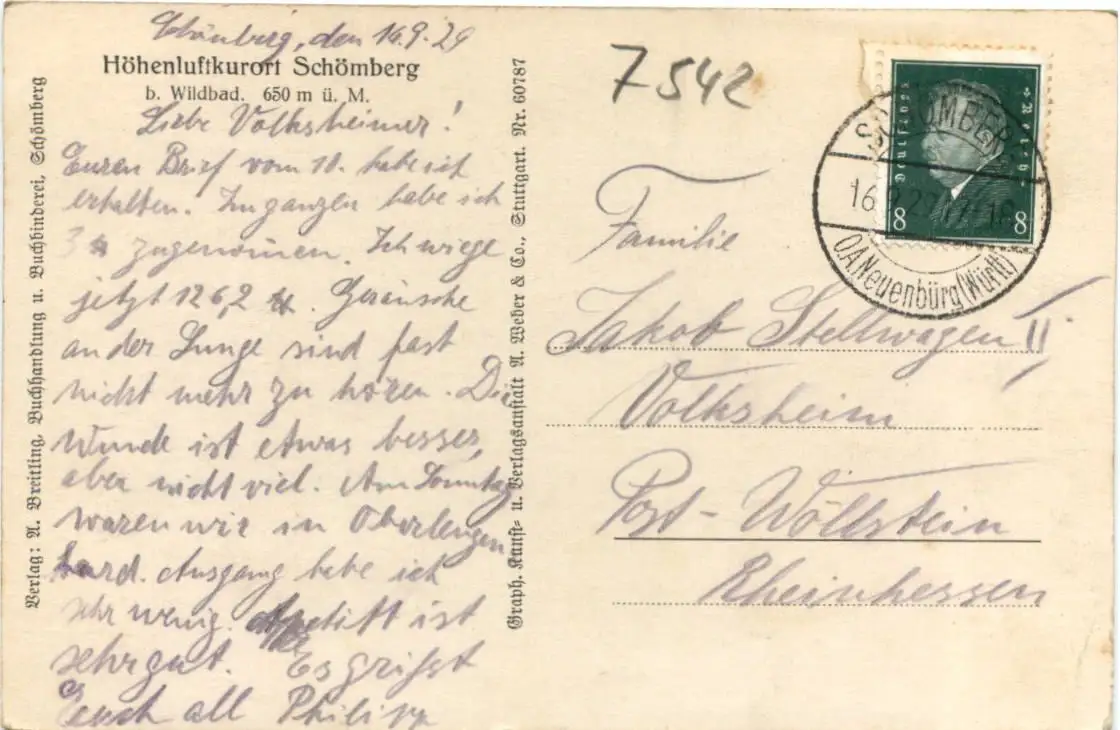 Schömberg, den 16.9.29
Höhenluftkurort Schömberg
b. Wildbad. 650 m ü. M.
Liebe Volksheimer!
Euren Brief vom 10. habe ich
erhalten. Im ganzen habe ich
3 ℔ zugenommen. Ich wiege
jetzt 126,2 ℔. Geräusche
an der Lunge sind fast
nicht mehr zu hören. Die
Wunde ist etwas besser,
aber nicht viel. Am Sonntag
waren wir in Oberlengen
hard. Ausgang habe ich
sehr wenig. Apetitt ist
sehr gut. Es grüsst
Euch all Philipp
Verlag: A. Breitling, Buchhandlung u. Buchbinderei, Schömberg
Graph. Kunst- u. Verlagsanstalt A. Weber & Co., Stuttgart. Nr. 60787
7542
Deutsches Reich
8 8
SCHÖMBERG
16. 9. 29. 17-18
O.A. Neuenbürg (Württ)
Familie
Jakob Stellwagen II
Volksheim
Post - Wöllstein
Rheinhessen